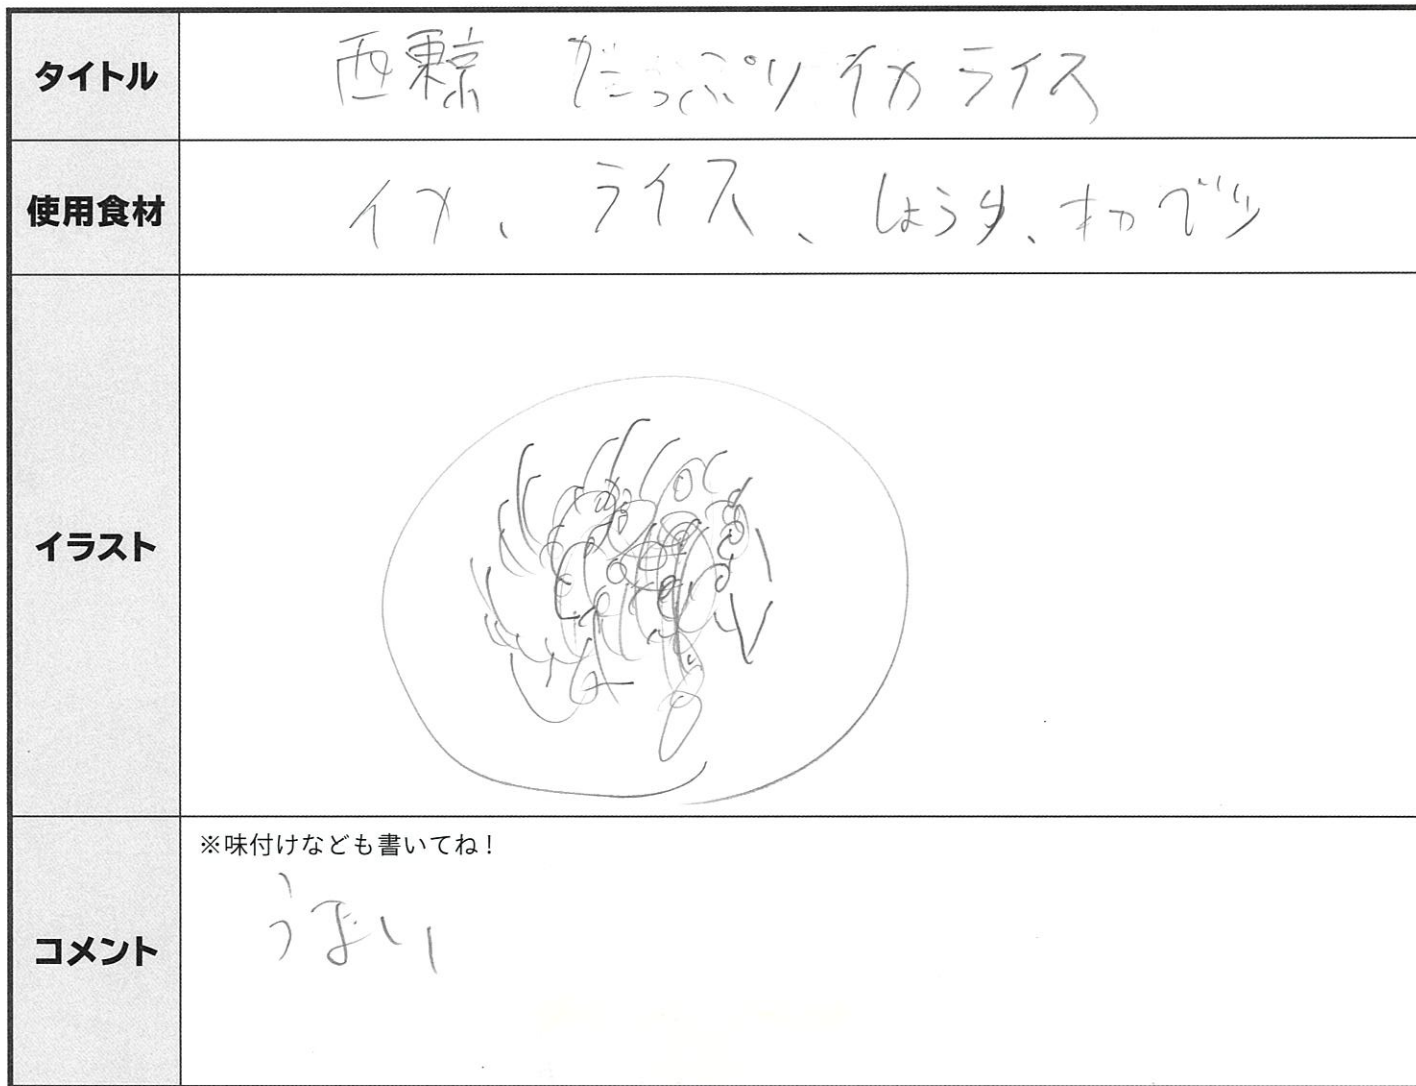 タイトル
西東京 だっぷりイカライス
使用食材
イカ、ライス、しょうゆ、キャベツ
イラスト
コメント
※味付けなども書いてね!
うまい